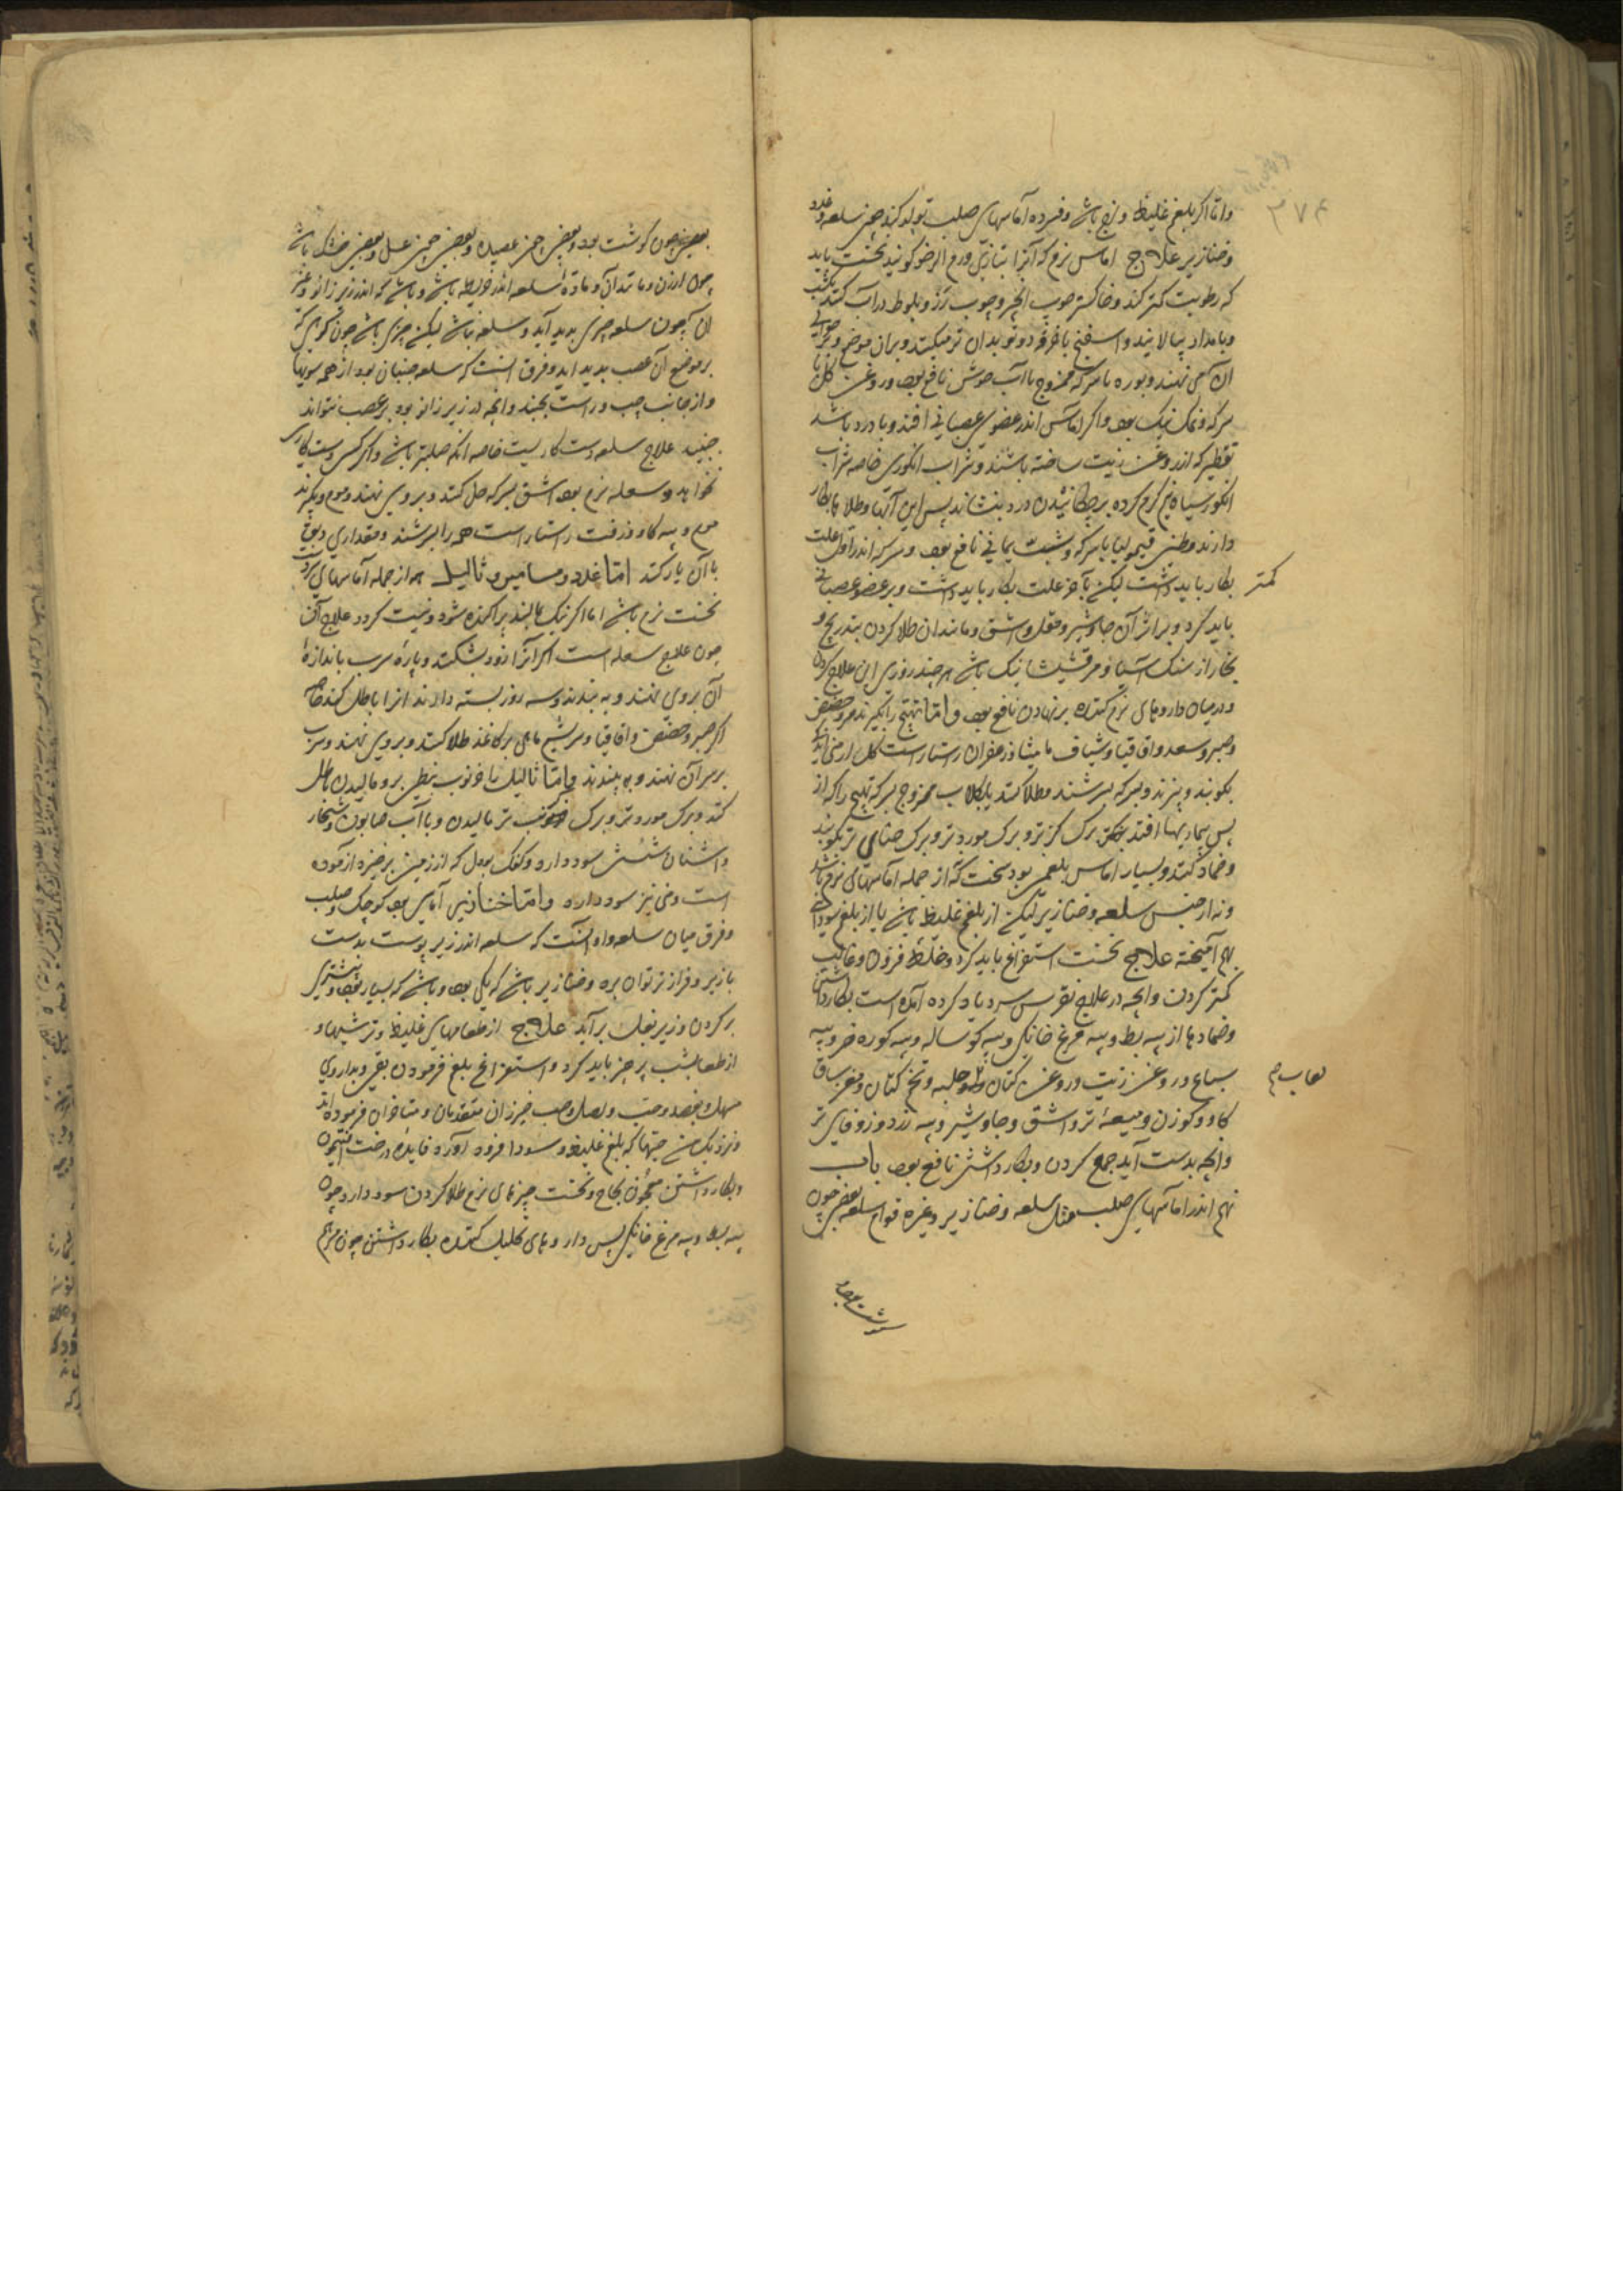 ۳۷۴
واما اگر بلغم غلیظ و لزج باشد و فسرده آماسهای صلب تولد کند چون سلعه و غدد
و خنازیر علاج اماس نرم که آنرا بتازی ورم الرخو کویند نخست باید
که رطوبت کمتر کند و خاکستر چوب انجیر و چوب رز و بلوط در آب کنند یکشب
و بامداد بپالایند و اسفنج یا خرقه دوتو بدان تر میکنند و بران موضع و حوالی
آن می نهند و بوره با سرکه ممزوج با آب خوش نافع بود و روغن کل با
سرکه و نمک نیک بود و اکر اماس اندر عضوی عصبانی افتد و با درد باشد
که از روغن زیت ساخته باشند و شراب انکوری خاصه شراب
انکور سیاه نیم کرم کرده بر چکانیدن درد بنشاند پس این آبها و طلاها بکار
دارند و طین قیمولیا با سرکه و شب یمانی نافع بود و سرکه اندر اول علت
کمتر
بکار باید داشت لیکن بآخر علت بکار باید داشت و بر عضو عصبانی
باید کرد و بر اثر آن جاوشیر و مقل و اشق و مانند آن طلا کردن بتدریج و
بخار از سنک آسیا و مرقشیشا نیک باشد هر چند روزی این علاج کردن
و در میان داروهای نرم کننده بر نهادن نافع بود و اما تهبج را بگیرند مر و حضض
و صبر و سعد و اقاقیا و شیاف مامیثا و زعفران راستاراست کل ارمنی
بکوبند و بپزند و بسرکه بسرشند و طلا کنند یا بکلاب ممزوج بسرکه تهبج را که از
پس بیماریها افتد برک کزبر تر و برک مورد تر و برک حنای تر بکوبند
و ضماد کنند و بسیار اماس بلغمی بود سخت که از جمله آماسهای نرم باشد
و نه از جنس سلعه و خنازیر لیکن از بلغم غلیظ باشد یا از بلغم سودائی
بهم آمیخته علاج نخست استفراغ باید کرد و خلط فزون و غالب
کمتر کردن و آنچه در علاج نقرس سرد یاد کرده آمده است بکار داشتن
و ضمادها از پیه بط و پیه مرغ خانکی و پیه کوساله و پیه کوره خر و پیه
لعاب م
سباع و روغن زیت و روغن کتان و حلبه و تخم کتان و مغز ساق
کاو و کوزن و میعهٔ تر و اشق و جاوشیر و پیه زرد و زوفای تر
و آنچه بدست آید جمع کردن و بکار داشتن نافع بود باب
نهم اندر اماسهای صلب مثل سلعه و خنازیر و غیره قوام سلعه بعضی چون
بعضی چون کوشت بود و بعضی چون عصیده و بعضی چون عسل و بعضی خشک باشد
چون ارزن و مانند آن و مادهٔ سلعه اندر خریطه باشد و باشد که اندر زیر زانو و غیر
آن چون سلعه چیزی پدید آید و سلعه نباشد لیکن چیزی باشد چون کرهی که
بر موضع آن عصب پدید آید و فرق آنست که سلعه جنبان بود از همه سویها
و از جانب چپ و راست بجنبد و آنچه در زیر زانو بود بر عصب نتواند
جنبید علاج سلعه دست کاریست خاصه آنکه صلبتر باشد و اکر کسی دست کاری
نخواهد و سعله نرم بود اشق بسرکه حل کنند و بروی نهند و موم و بکیرند
موم و پیه کاو و زفت راستاراست همه را بسرشند و مقداری دبق
با آن یار کنند اما غدد و مسامیر و ثالیل هم از جمله آماسهای
نخست نرم باشد اما اکر نیک بمالند پراکنده شود و نیست کردد علاج آن
چون علاج سعله است اکر آنرا زود بشکنند و پارهٔ سرب باندازهٔ
آن بروی نهند و به بندند و سه روز بسته دارند آنرا باطل کند خاصه
اکر صبر و حضض و اقاقیا و سریشم ماهی بر کاغذ طلا کنند و بروی نهند و سرب
بر سر آن نهند و به ببندند و اما ثالیل با خرنوب نبطی بر و مالیدن باطل
کند و برک مورد تر و برک خرنوب تر مالیدن و با آب صابون و شخار
و اشنان شستن سود دارد و کفک بول که از زمین برخیزد آزموده
است و منی نیز سود دارد و اما خنازیر آماسی بود کوچک و صلب
و فرق میان سلعه و او آنست که سلعه اندر زیر پوست بدست
بازیر و فرازتر توان برد و خنازیر باشد که یکی بود و باشد که بسیار بود و بیشتر
بر کردن و زیر بغل برآید علاج از طعامهای غلیظ و ترشیها و
از طعام شب پرهیز باید کرد و استفراغ بلغم فرمودن بقی و بداروی
مسهل و بفصد و حب و بصل و حب خیرزان متقدمان و متاخران فرموده اند
و نزدیک من حبها که بلغم غلیظ و سودا فرود آورد فایده درخت افتیمون
و بکار داشتن معجون نجاح و نخست چیزهای نرم طلا کردن سود دارد چون
پیه بط و پیه مرغ خانکی پس داروهای تحلیل کننده بکار داشتن چون مرهم